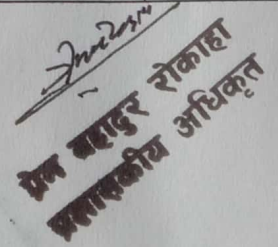 प्रेम बहादुर रोकाहा
प्रशासकीय अधिकृत